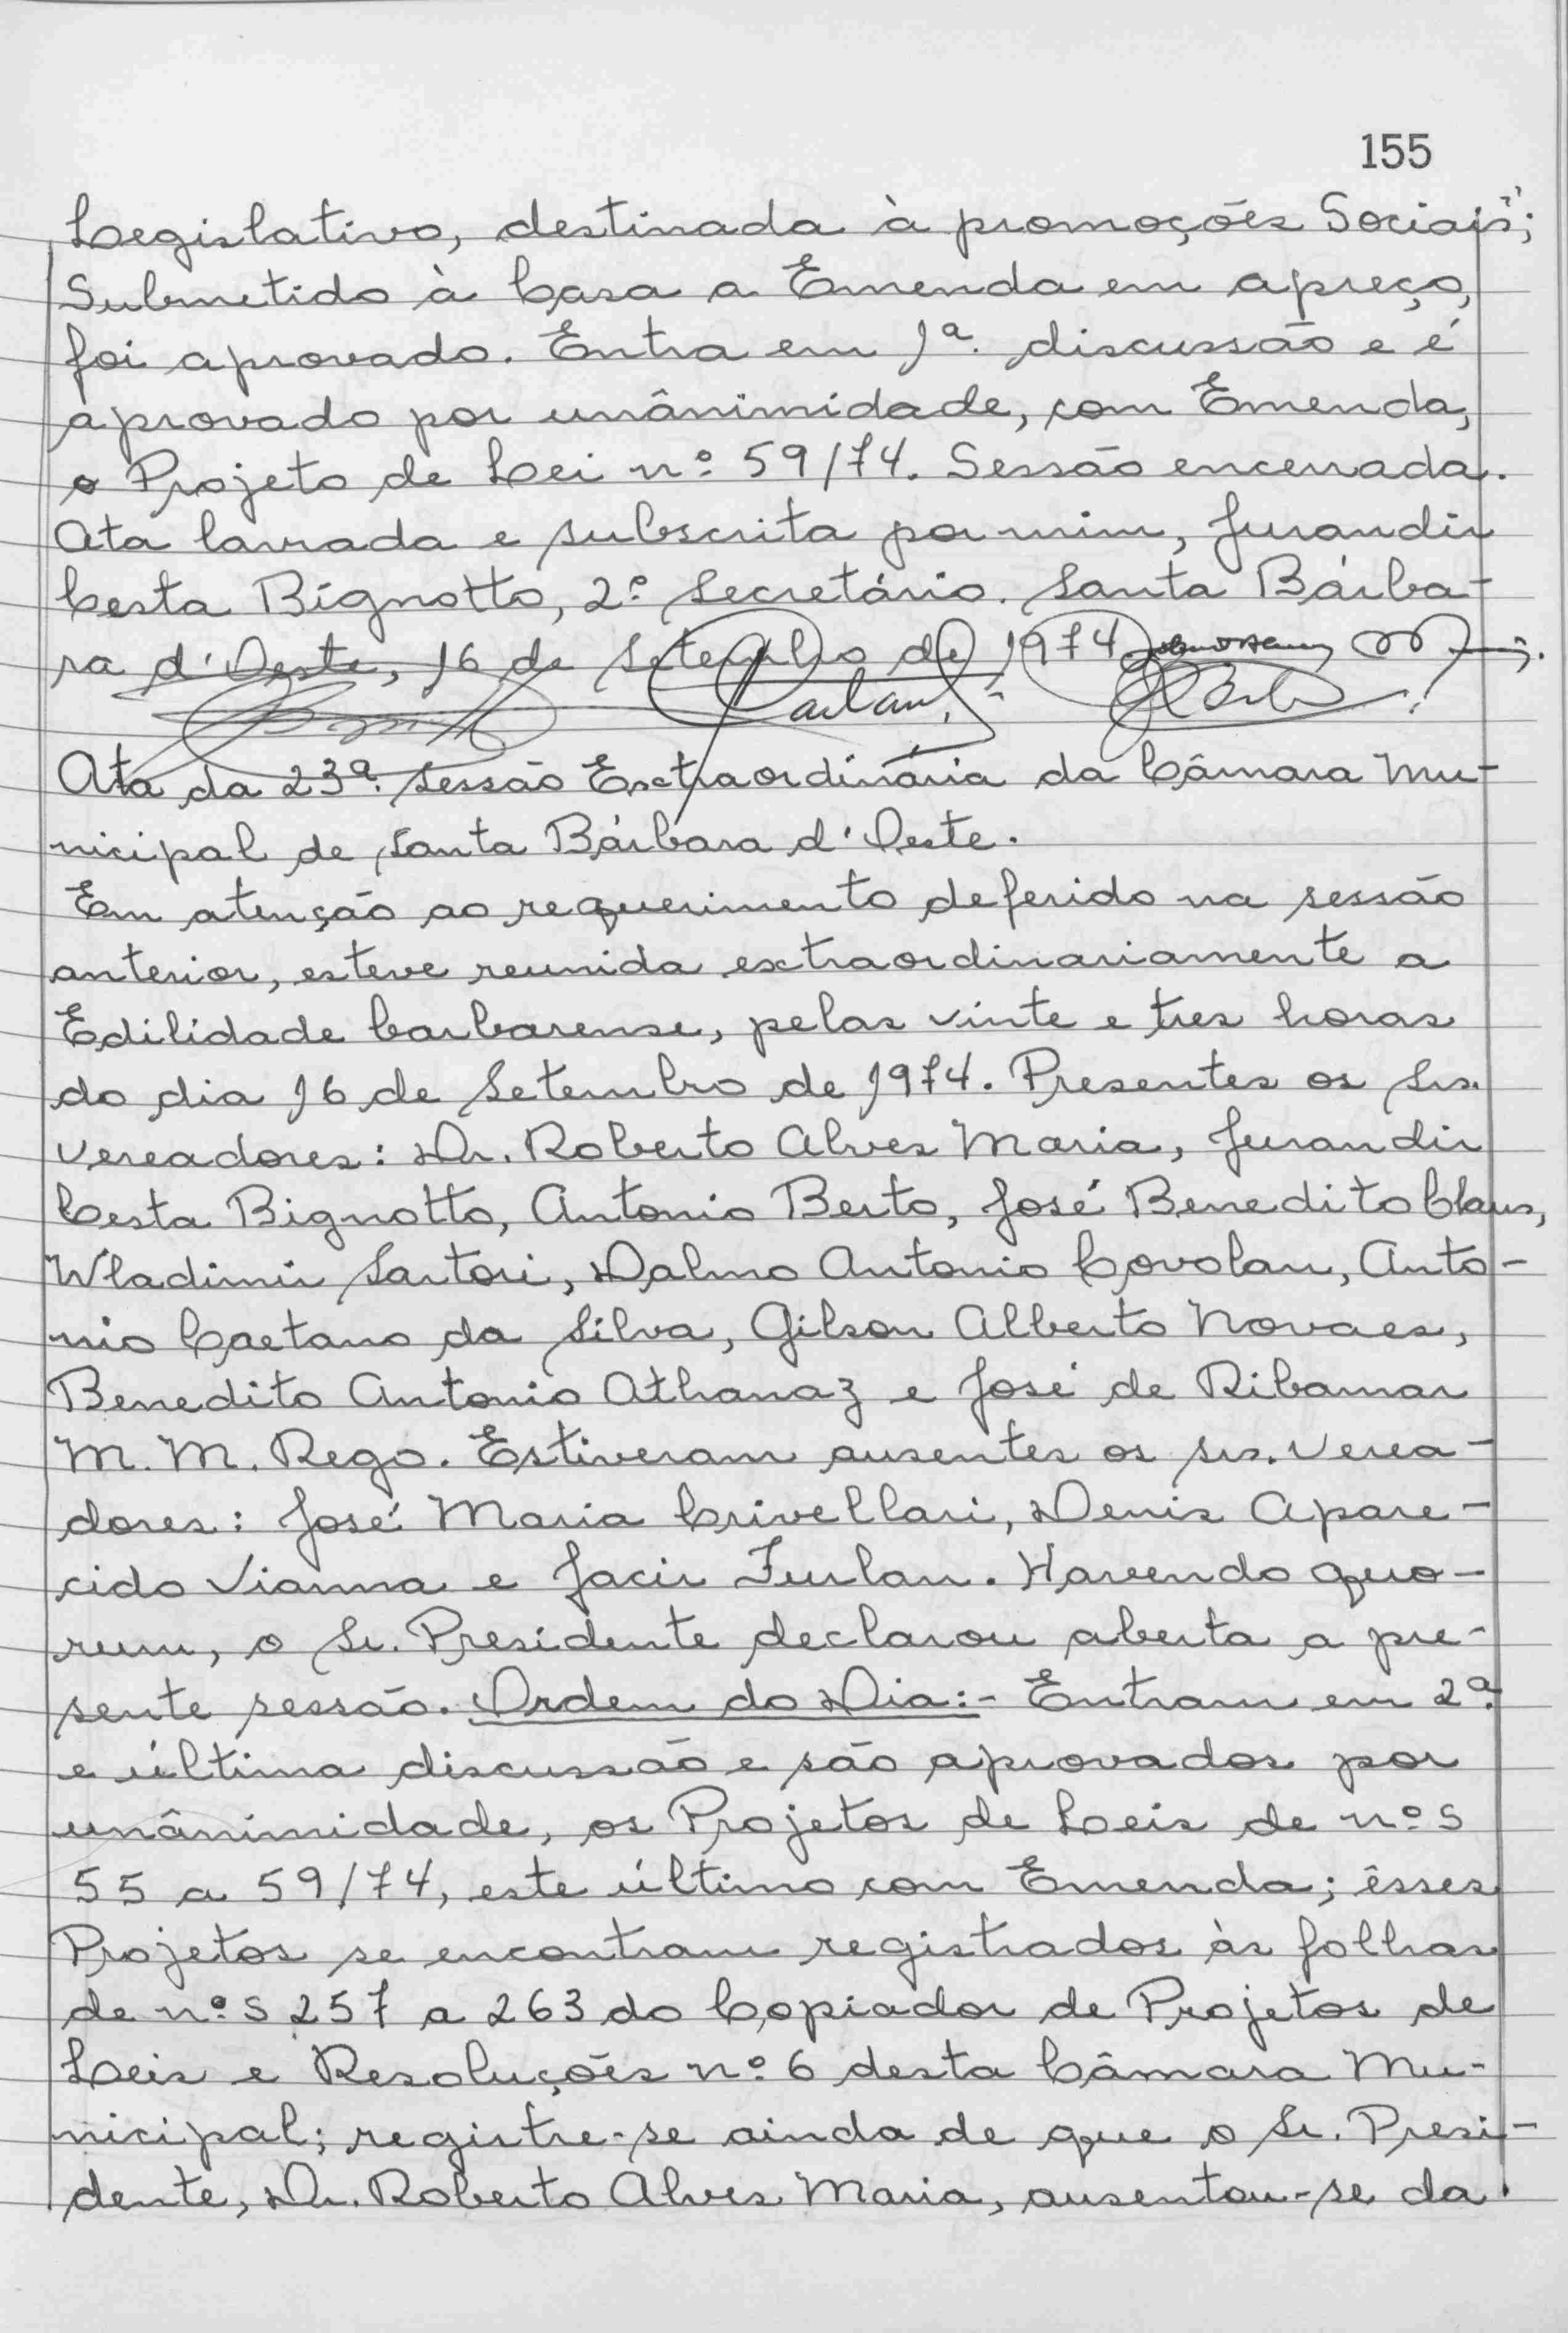 155
Legislativo, destinada à promoções Sociais";
Submetido à Casa a Emenda em apreço,
foi aprovado. Entra em 1ª. discussão e é
aprovado por unânimidade, com Emenda,
o Projeto de Lei nº 59/74. Sessão encerrada.
Ata lavrada e subscrita por mim, Jurandir
Cesta Bignotto, 2º Secretário. Santa Bárba-
ra d'Oeste, 16 de Setembro de 1974.
Ata da 23ª Sessão Extraordinária da Câmara Mu-
nicipal de Santa Bárbara d'Oeste.
Em atenção ao requerimento deferido na sessão
anterior, esteve reunida extraordinariamente a
Edilidade barbarense, pelas vinte e tres horas
do dia 16 de Setembro de 1974. Presentes os Srs.
Vereadores: Dr. Roberto Alves Maria, Jurandir
Cesta Bignotto, Antonio Berto, José Benedito Claus,
Wladimir Sartori, Dalmo Antonio Covolan, Anto-
nio Caetano da Silva, Gilson Alberto Novaes,
Benedito Antonio Athanaz e José de Ribamar
M. M. Rego. Estiveram ausentes os srs. Verea-
dores: José Maria Crivellari, Denis Apare-
cido Vianna e Jacir Furlan. Havendo quo-
rum, o Sr. Presidente declarou aberta a pre-
sente sessão. Ordem do Dia:- Entram em 2ª.
e última discussão e são aprovados por
unânimidade, os Projetos de Leis de nºs
55 a 59/74, este último com Emenda; êsses
Projetos se encontram registrados às folhas
de nºs 257 a 263 do Copiador de Projetos de
Leis e Resoluções nº 6 desta Câmara Mu-
nicipal; registre-se ainda de que o Sr. Presi-
dente, Dr. Roberto Alves Maria, ausentou-se da